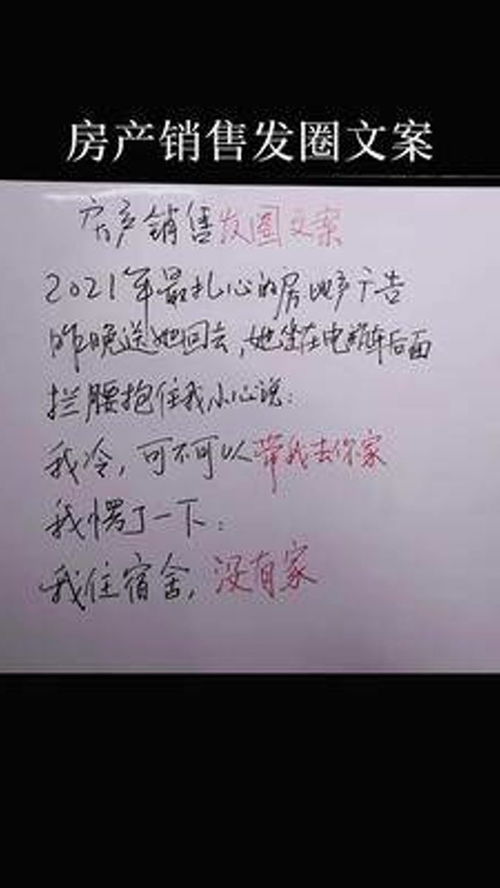 房产销售发圈文案
房产销售发圈文案
2021年最扎心的房地产广告
昨晚送她回去,她坐在电瓶车后面
拦腰抱住我小心说:
我冷,可不可以带我去你家
我愣了一下:
我住宿舍,没有家